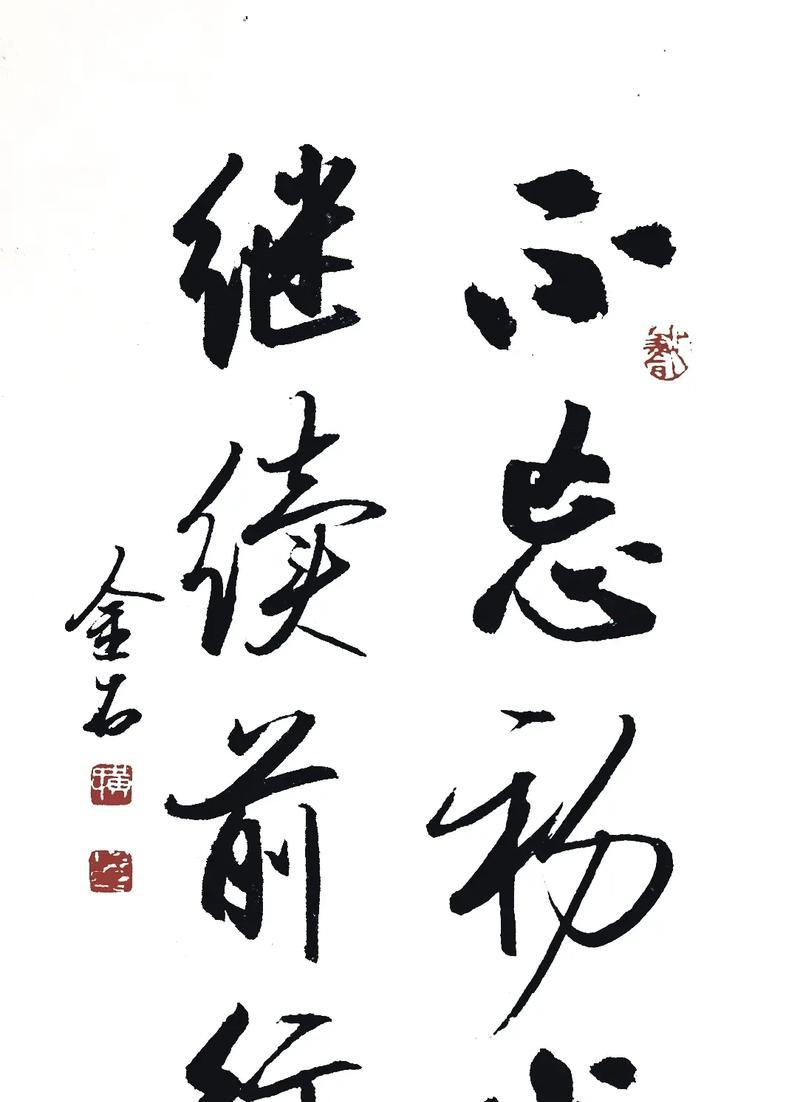 不忘初心
继续前行
金石